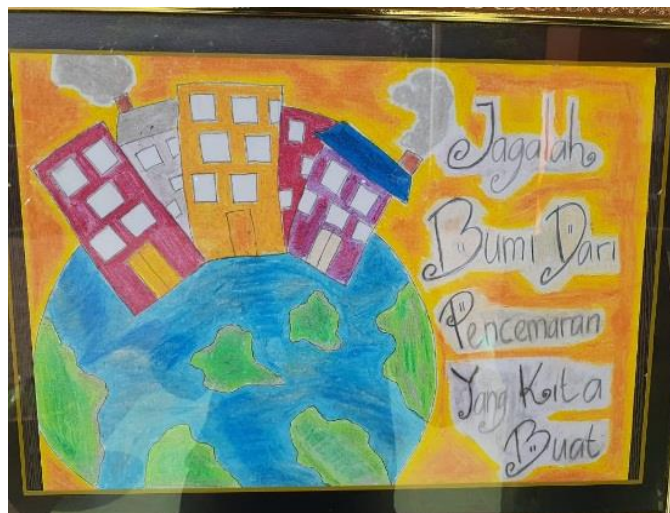 Jagalah
Bumi Dari
Pencemaran
Yang Kita
Buat